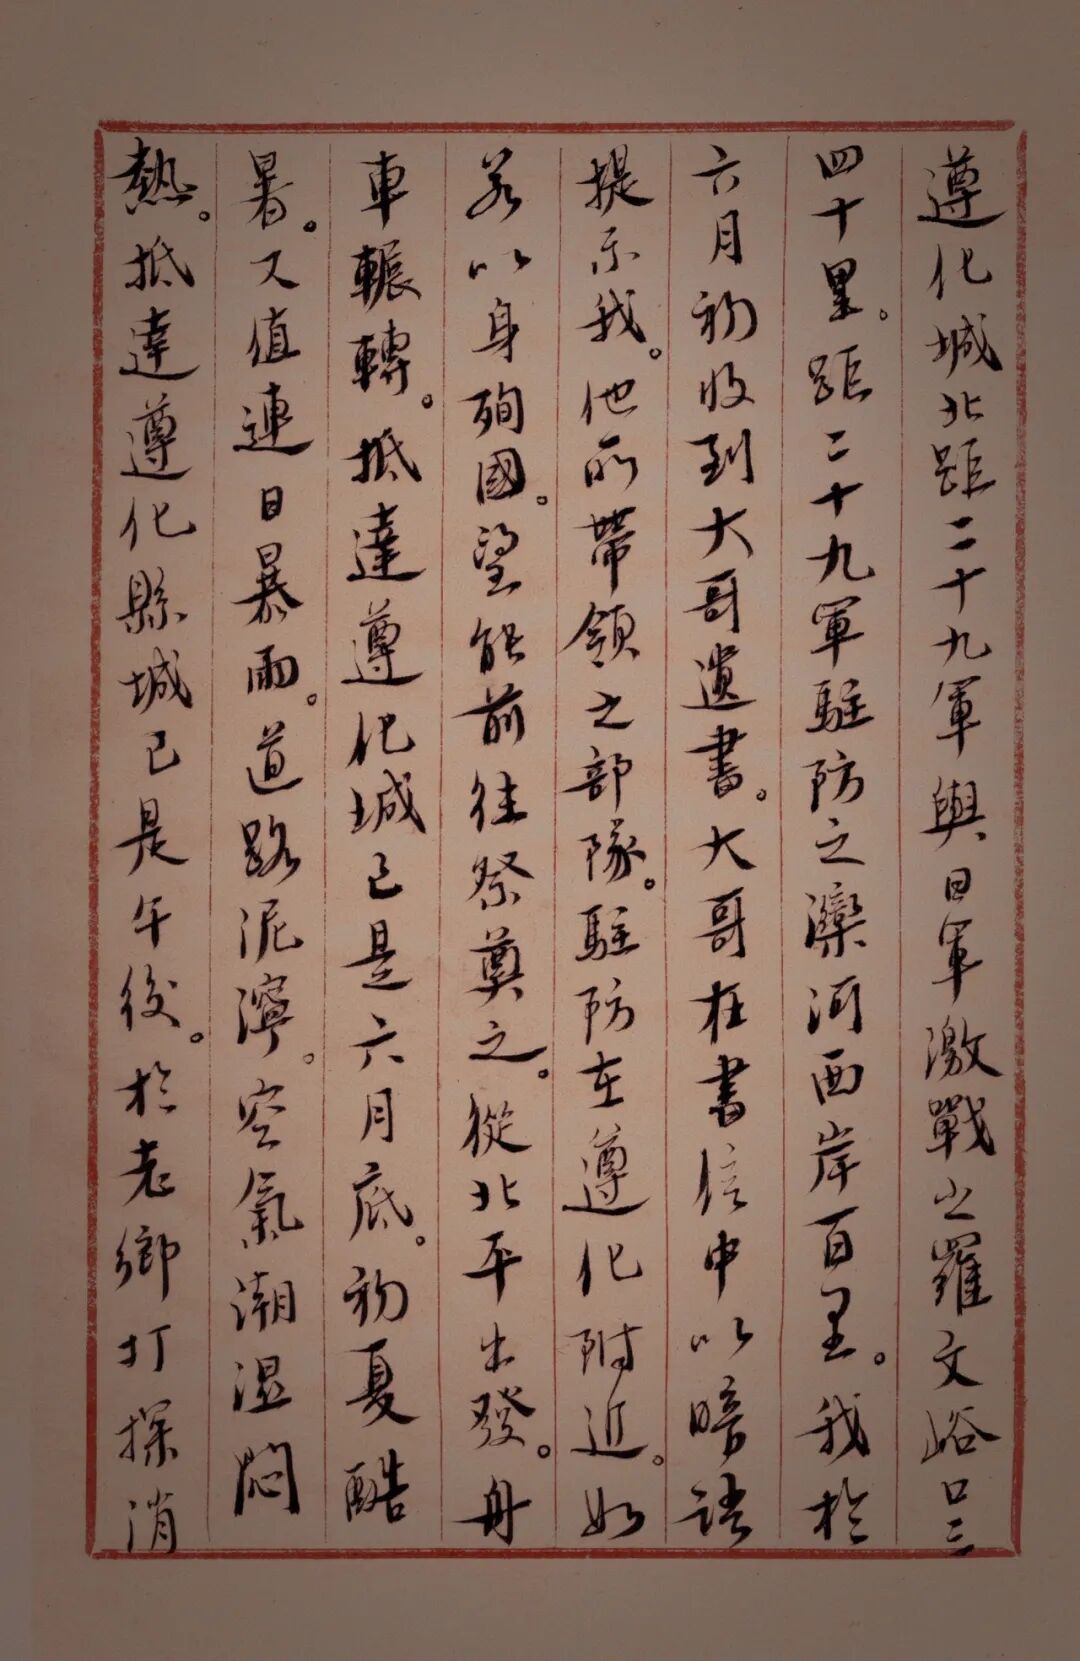 遵化城北距二十九軍與日軍激戰之羅文峪口三
四十里。距二十九軍駐防之灤河西岸百里。我於
六月初收到大哥遺書。大哥在書信中以暗語
提示我。他所帶領之部隊。駐防在遵化附近。如
若以身殉國。望能前往祭奠之。從北平出發。舟
車輾轉。抵達遵化城已是六月底。初夏酷
暑。又值連日暴雨。道路泥濘。空氣潮濕悶
熱。抵達遵化縣城已是午後。於老鄉打探消